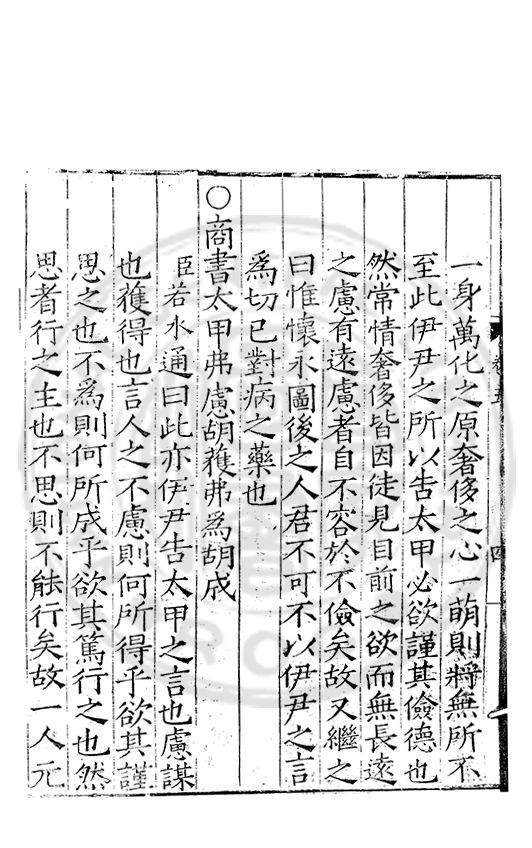 一身萬化之原奢侈之心一萌則將無所不
至此伊尹之所以告太甲必欲謹其儉德也
然常情奢侈皆因徒見目前之欲而無長遠
之慮有遠慮者自不容於不儉矣故又繼之
曰惟懷永圖後之人君不可不以伊尹之言
為切已對病之藥也
○商書太甲弗慮胡獲弗為胡成
臣若水通曰此亦伊尹告太甲之言也慮謀
也獲得也言人之不慮則何所得乎欲其謹
思之也不為則何所成乎欲其篤行之也然
思者行之主也不思則不能行矣故一人元